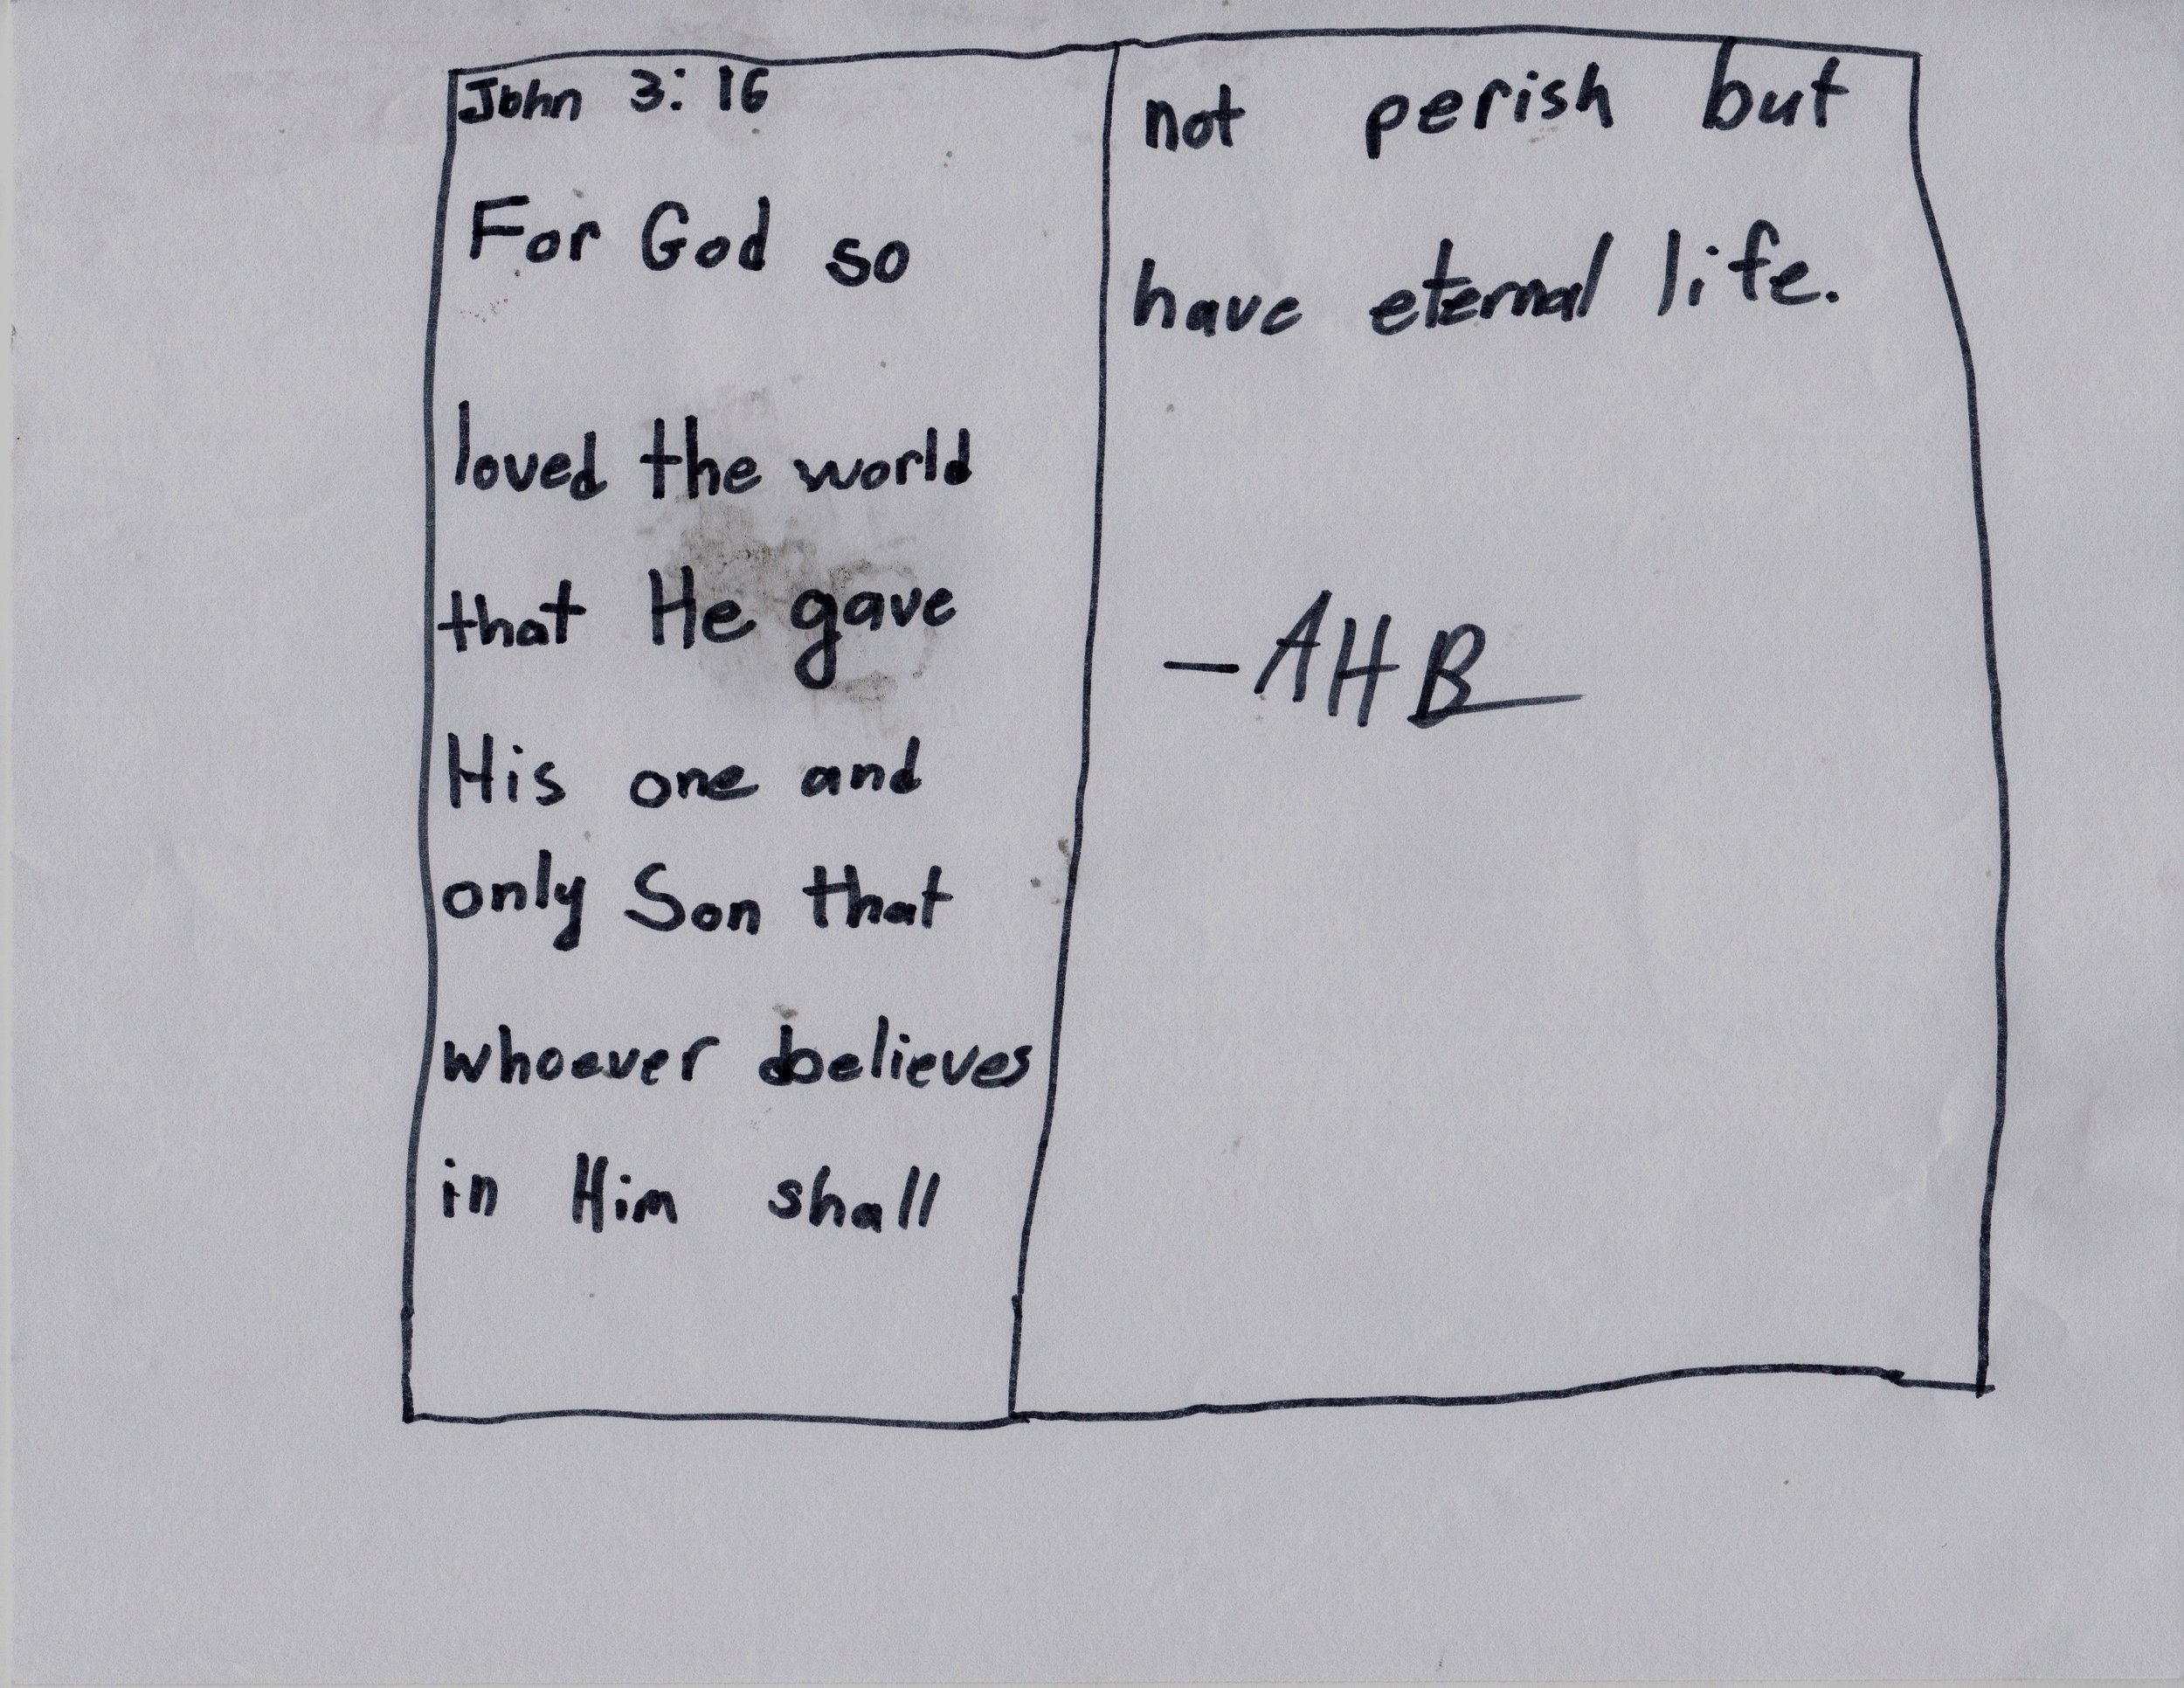 John 3:16
For God so
loved the world
that He gave
His one and
only Son that
whoever believes
in Him shall
not perish but
have eternal life.
- AHB